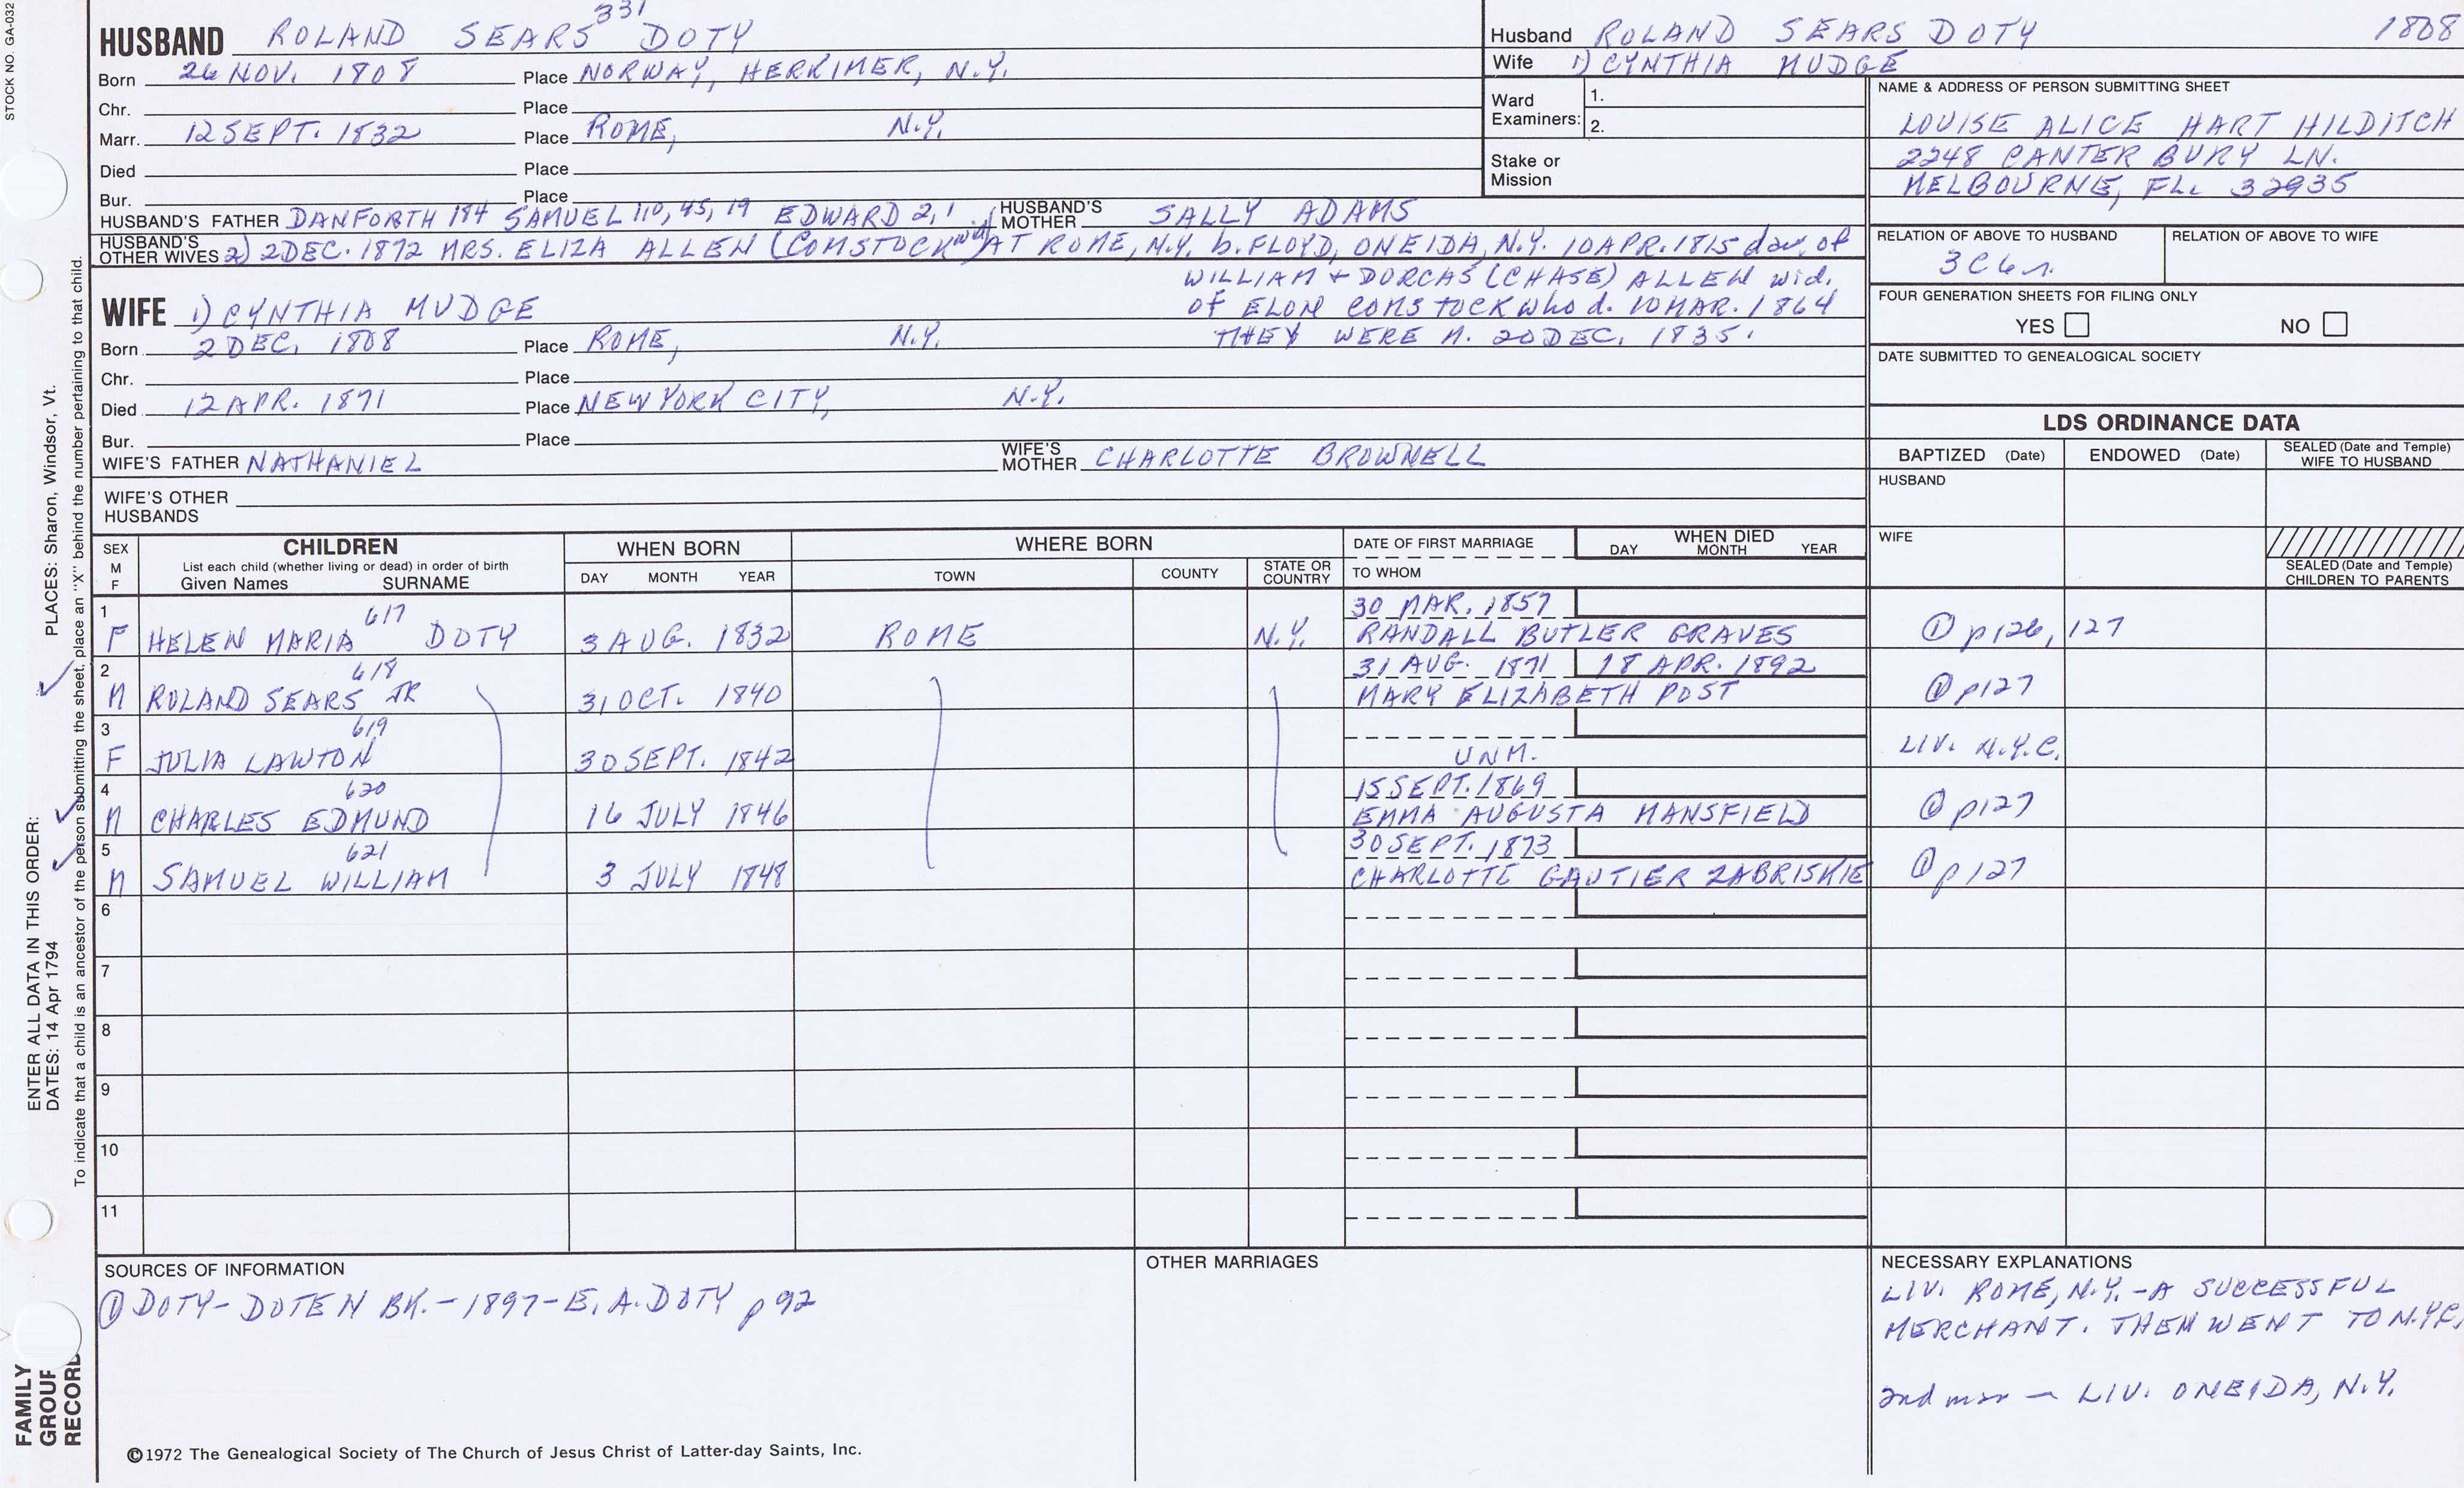 STOCK NO. GA-032
331
HUSBAND ROLAND SEARS DOTY
Born 26 NOV. 1808 Place NORWAY, HERKIMER, N.Y.
Chr. Place
Marr. 12 SEPT. 1832 Place ROME, N.Y.
Died Place
Bur. Place
HUSBAND'S FATHER DANFORTH 184 SAMUEL 110, 45, 19 EDWARD 2, 1 HUSBAND'S MOTHER SALLY ADAMS
HUSBAND'S OTHER WIVES 2) 2 DEC. 1872 MRS. ELIZA ALLEN (COMSTOCK wid) AT ROME, N.Y. b. FLOYD, ONEIDA, N.Y. 10 APR. 1815 dau. of
WILLIAM + DORCAS (CHASE) ALLEN wid.
of ELON COMSTOCK who d. 10 MAR. 1864
THEY WERE M. 20 DEC. 1835.
WIFE 1) CYNTHIA MUDGE
Born 2 DEC. 1808 Place ROME, N.Y.
Chr. Place
Died 12 APR. 1871 Place NEW YORK CITY, N.Y.
Bur. Place
WIFE'S FATHER NATHANIEL WIFE'S MOTHER CHARLOTTE BROWNELL
WIFE'S OTHER HUSBANDS
Husband ROLAND SEARS DOTY 1808
Wife 1) CYNTHIA MUDGE
Ward Examiners: 1.
2.
Stake or Mission
NAME & ADDRESS OF PERSON SUBMITTING SHEET
LOUISE ALICE HART HILDITCH
2248 CANTERBURY LN.
MELBOURNE, FL. 32935
RELATION OF ABOVE TO HUSBAND RELATION OF ABOVE TO WIFE
3C6r.
FOUR GENERATION SHEETS FOR FILING ONLY
YES NO
DATE SUBMITTED TO GENEALOGICAL SOCIETY
LDS ORDINANCE DATA
BAPTIZED (Date) ENDOWED (Date) SEALED (Date and Temple) WIFE TO HUSBAND
HUSBAND
WIFE
SEALED (Date and Temple) CHILDREN TO PARENTS
SEX M F CHILDREN List each child (whether living or dead) in order of birth Given Names SURNAME WHEN BORN DAY MONTH YEAR WHERE BORN TOWN COUNTY STATE OR COUNTRY DATE OF FIRST MARRIAGE TO WHOM WHEN DIED DAY MONTH YEAR
1 617 30 MAR. 1857
F HELEN MARIA DOTY 3 AUG. 1832 ROME N.Y. RANDALL BUTLER GRAVES ① p126, 127
2 618 31 AUG. 1871 18 APR. 1892
M ROLAND SEARS JR 31 OCT. 1840 MARY ELIZABETH POST ① p127
3 619
F JULIA LAWTON 30 SEPT. 1842 UNM. LIV. N.Y.C.
4 620 15 SEPT. 1869
M CHARLES EDMUND 16 JULY 1846 EMMA AUGUSTA MANSFIELD ① p127
5 621 30 SEPT. 1873
M SAMUEL WILLIAM 3 JULY 1848 CHARLOTTE GAUTIER ZABRISKIE ① p127
6
7
8
9
10
11
SOURCES OF INFORMATION
① DOTY-DOTEN BK.-1897-E.A. DOTY p 92
OTHER MARRIAGES
NECESSARY EXPLANATIONS
LIV. ROME, N.Y. - A SUCCESSFUL
MERCHANT. THEN WENT TO N.Y.C.
2nd mar — LIV. ONEIDA, N.Y.
©1972 The Genealogical Society of The Church of Jesus Christ of Latter-day Saints, Inc.
ENTER ALL DATA IN THIS ORDER:
DATES: 14 Apr 1794 PLACES: Sharon, Windsor, Vt.
To indicate that a child is an ancestor of the person submitting the sheet, place an "X" behind the number pertaining to that child.
FAMILY
GROUP
RECORD